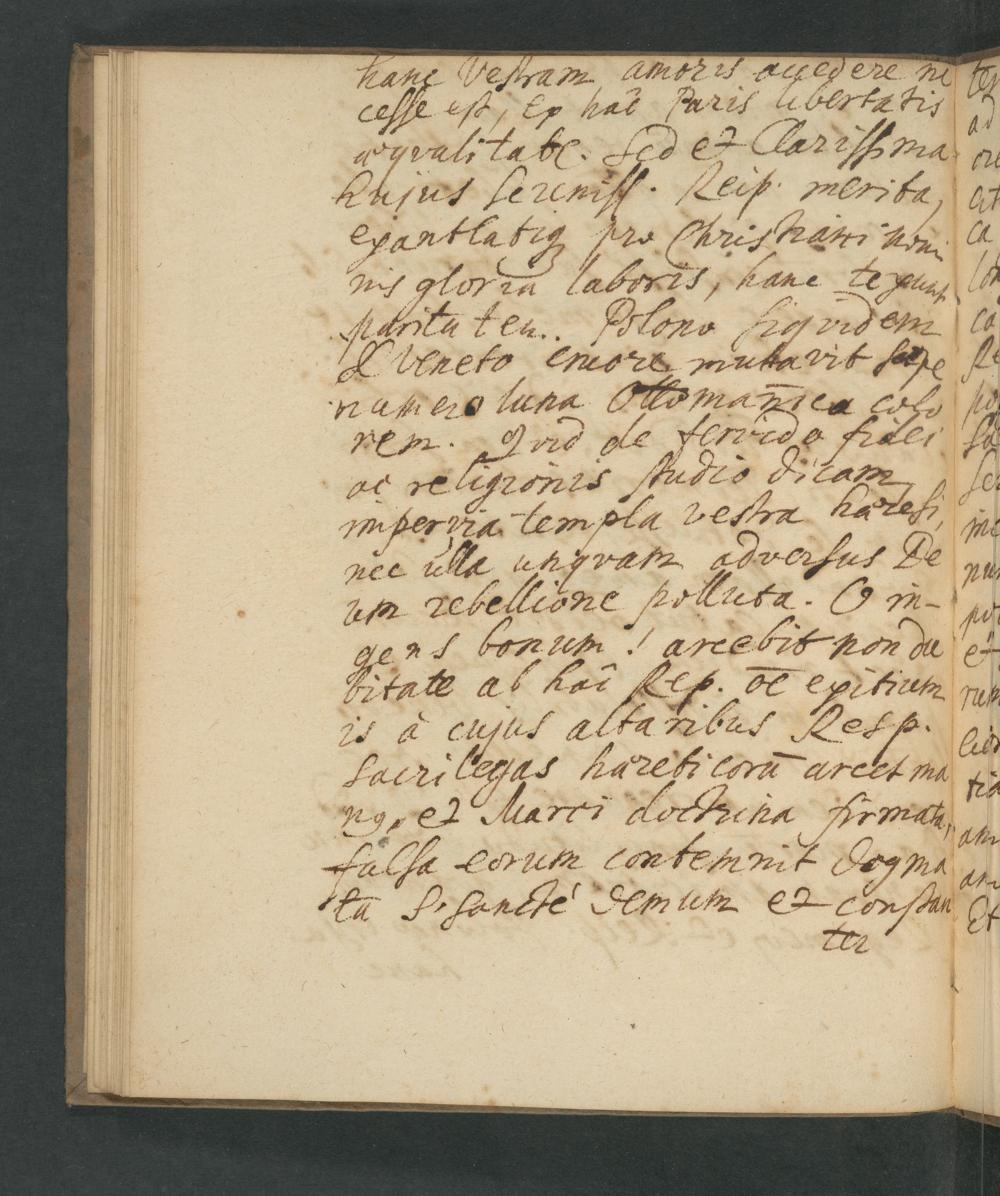 hanc Vestram amoris accedere ne
cesse est, Ex hac Paris libertatis
æqvalitate. Sed et Clarissima
hujus Sereniss. Reip. merita,
exantlatiq pro Christiani nomi
nis gloria laboris, hanc tegunt
paritatem. Polono siqvidem
& Veneto cruore mutavit sæpe
numero luna Ottomanica colo
rem. Qvid de fervido fidei
ac religionis studio dicam
impervia templa vestra hæresi,
nec ulla unqvam adversus De
um rebellione polluta. O in-
gens bonum! arcebit non du
bitate ab hac Rep. oe exitium
is à cujus altaribus Resp.
sacrilegas hæreticorū arcet ma
ng, et Marci doctrina firmata,
falsa eorum contemnit dogma
ta S. sancte demum et constan
ter
ter
ad
ca
Et